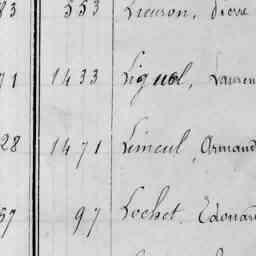 83 553 Lieuron, Pierre
71 1433 Liguol, Lauren
28 1471 Limeul, Armand
57 97 Lochet, Edouard